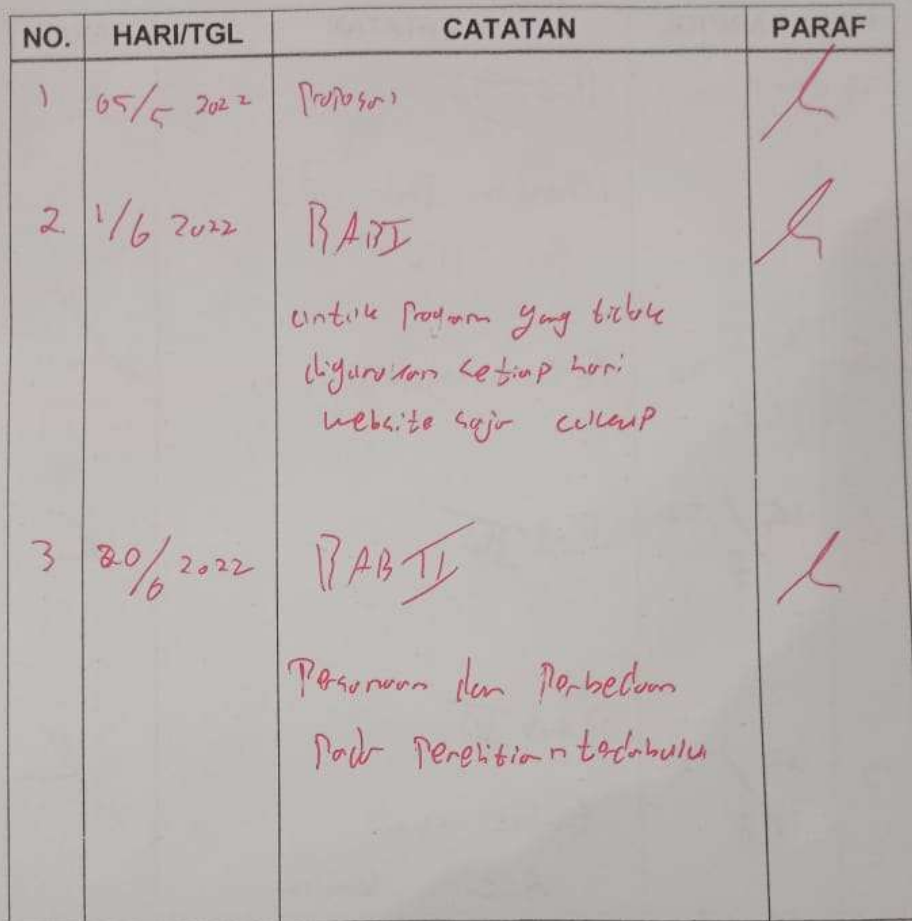 NO. HARI/TGL CATATAN PARAF
1 05/5 2022 Proposal
2. 1/6 2022 BAB I
untuk program yang tidak
digunakan setiap hari
website saja cukup
3 20/6 2022 BAB II
Persamaan dan Perbedaan
Pada Penelitian terdahulu